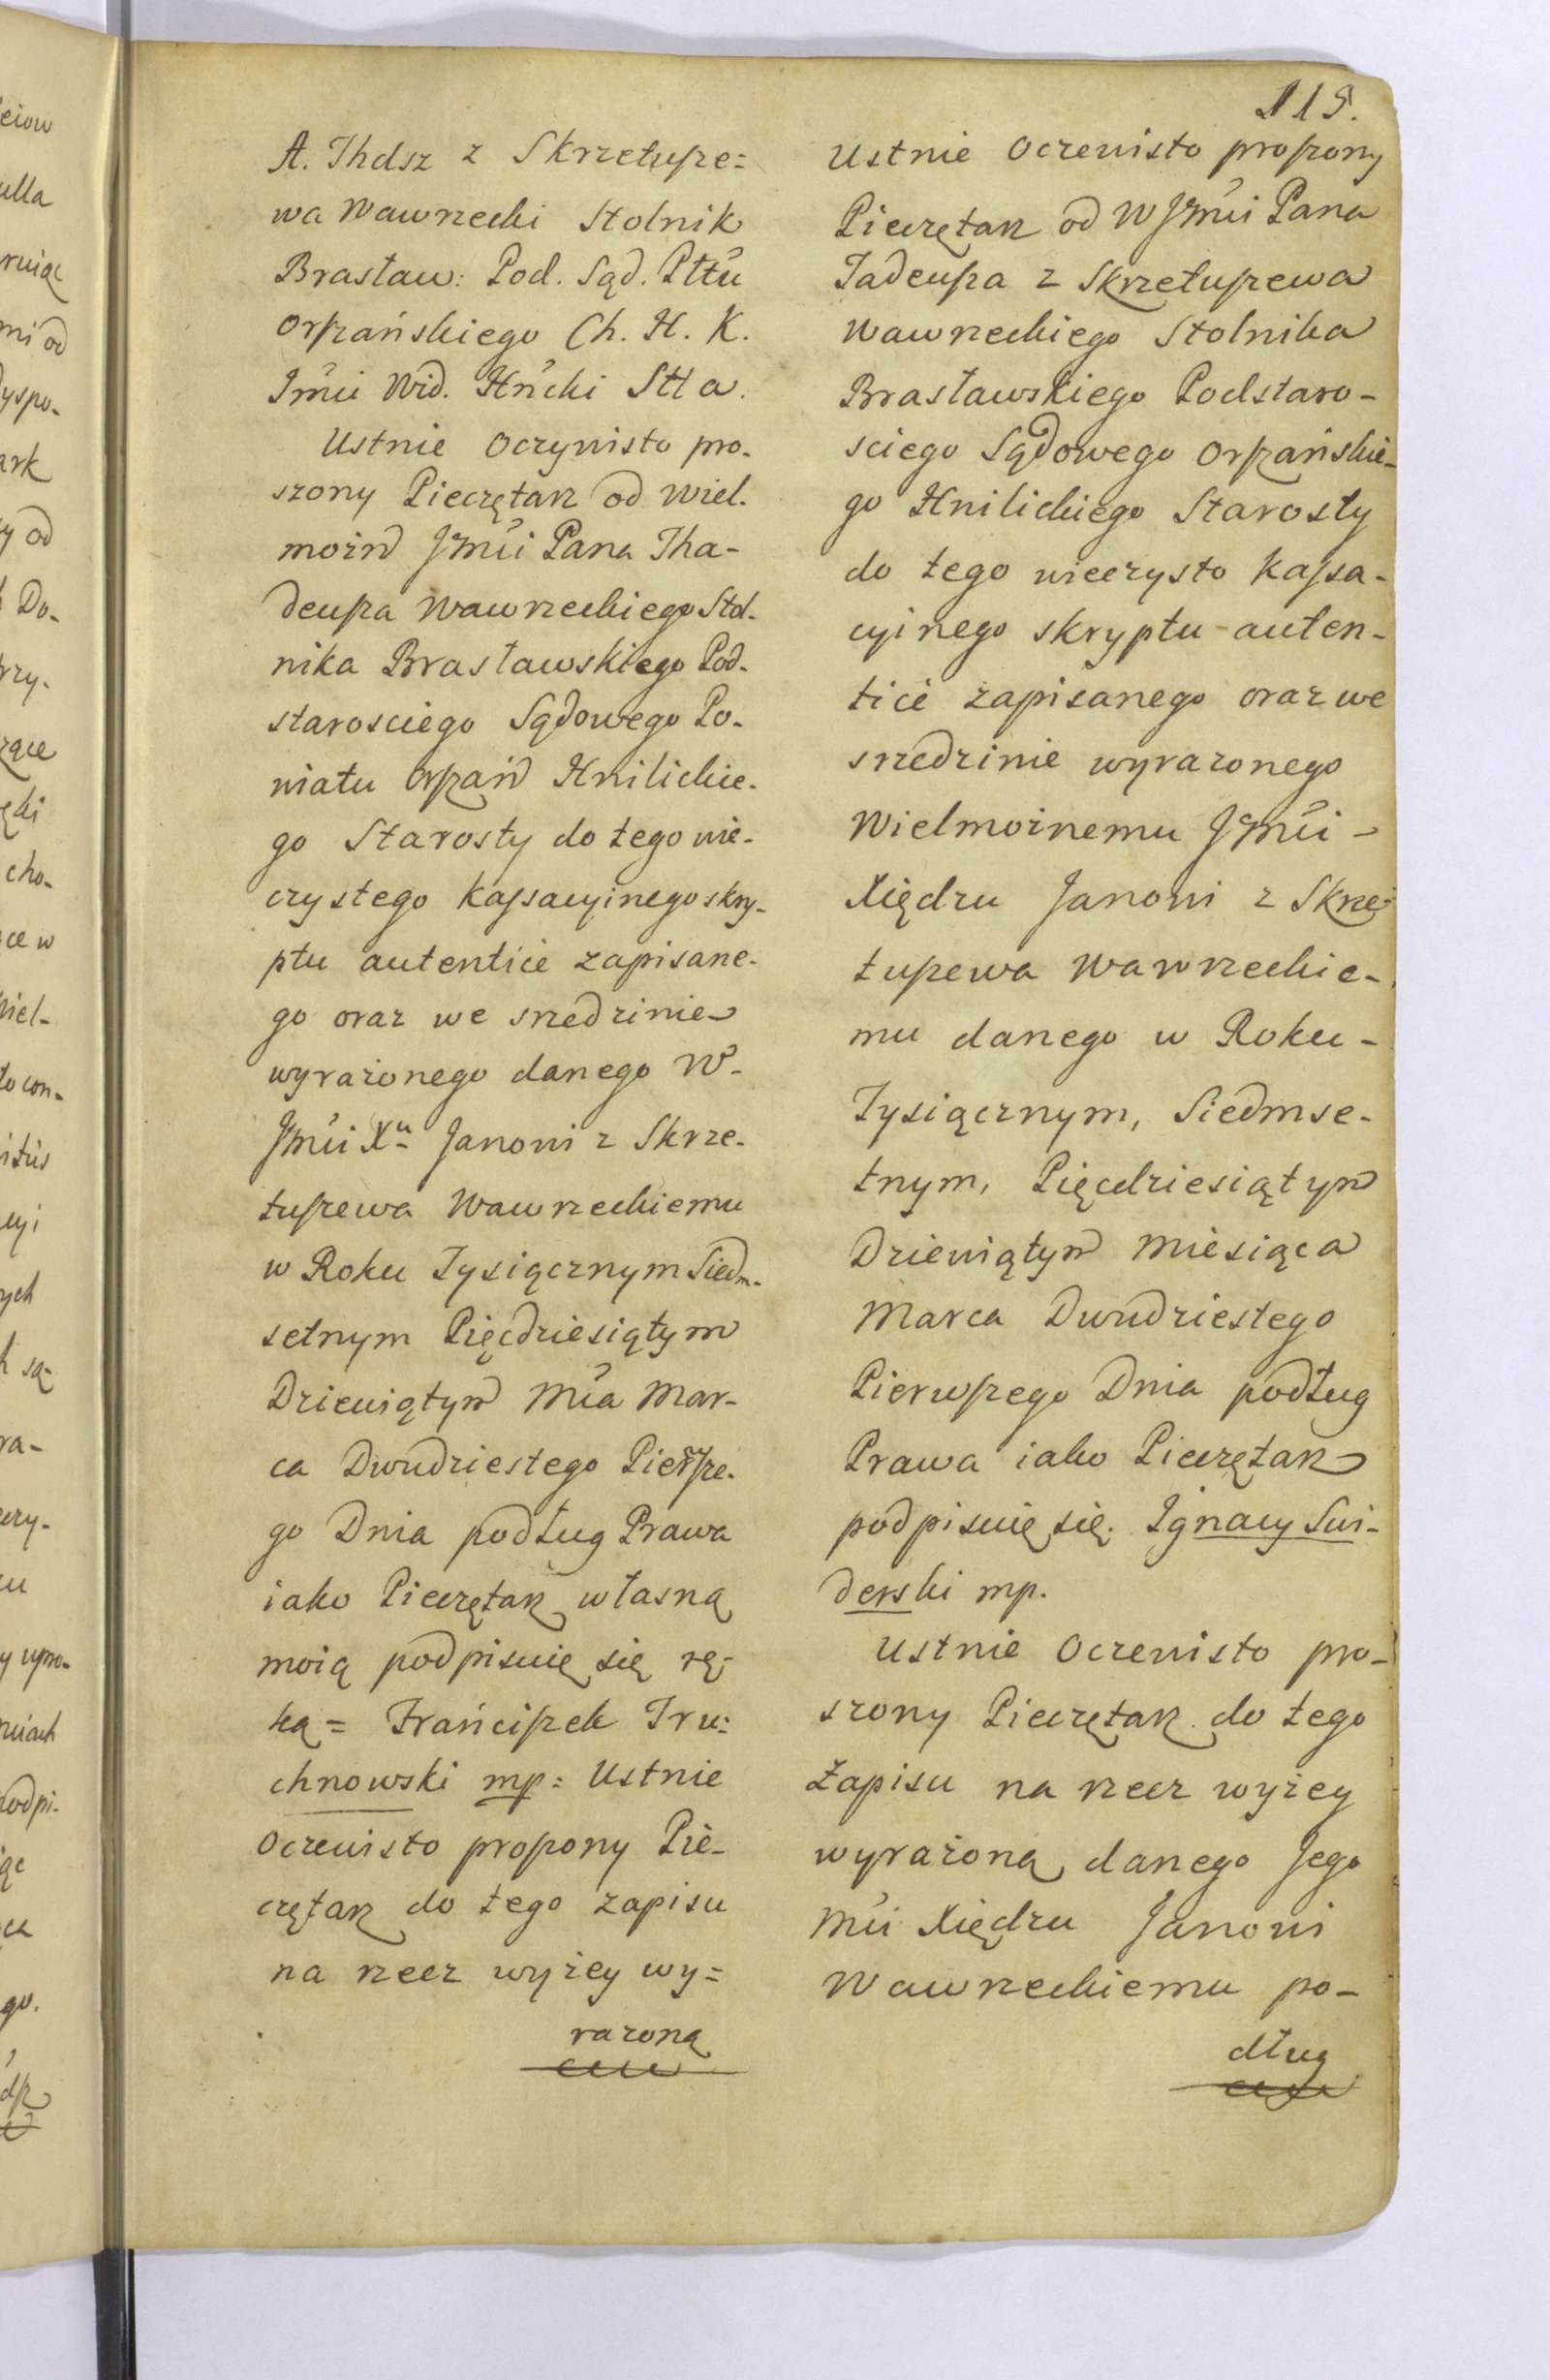 115.
A. Thdsz z Skrzetusze=
wa Wawrzecki Stolnik
Brasław: Pod. Sąd. Pttu
Orszańskiego Ch. H. K.
Jmci Wid. Hncki Stta.
Ustnie Oczywisto pro-
szony Pieczętarz od Wiel.
możn Jmci Pana Tha-
deusza Wawrzeckiego Stol-
nika Brasławskiego Pod-
starosciego Sądowego Po-
wiatu Orszań Hnilickie-
go Starosty do tego wie-
czystego kassacyinego skry-
ptu autenticè zapisane-
go oraz we srzedzinie
wyrażonego danego W-
Jmci Xu Janowi z Skrze-
tuszewa Wawrzeckiemu
w Roku Tysiącznym Siedm-
setnym Pięcdziesiątym
Dziewiątym Mca Mar-
ca Dwudziestego Pierwsze-
go Dnia podług Prawa
iako Pieczętarz własną
moią podpisuię się rę-
ką = Franciszek Tru=
chnowski mp = Ustnie
Oczewisto proszony Pie-
czętarz do tego zapisu
na rzecz wyżey wy=
rażoną
Ustnie Oczewisto proszony
Pieczętarz od W Jmci Pana
Tadeusza z Skrzetuszewa
Wawrzeckiego Stolnika
Brasławskiego Podstaro-
sciego Sądowego Orszańskie-
go Hnilickiego Starosty
do tego wieczysto kassa-
cyinego skryptu auten-
ticè zapisanego oraz we
srzedzinie wyrażonego
Wielmożnemu Jmci
Xiędzu Janowi z Skrze-
tuszewa Wawrzeckie-
mu danego w Roku -
Tysiącznym, Siedmse-
tnym, Pięcdziesiątym
Dziewiątym Miesiąca
Marca Dwudziestego
Pierwszego Dnia podług
Prawa iako Pieczętarz
podpisuię się. Ignacy Swi-
derski mp.
Ustnie Oczewisto pro-
szony Pieczętarz do tego
Zapisu na rzecz wyżey
wyrażoną danego Jego
Mci Xiędzu Janowi
Wawrzeckiemu po-
dług